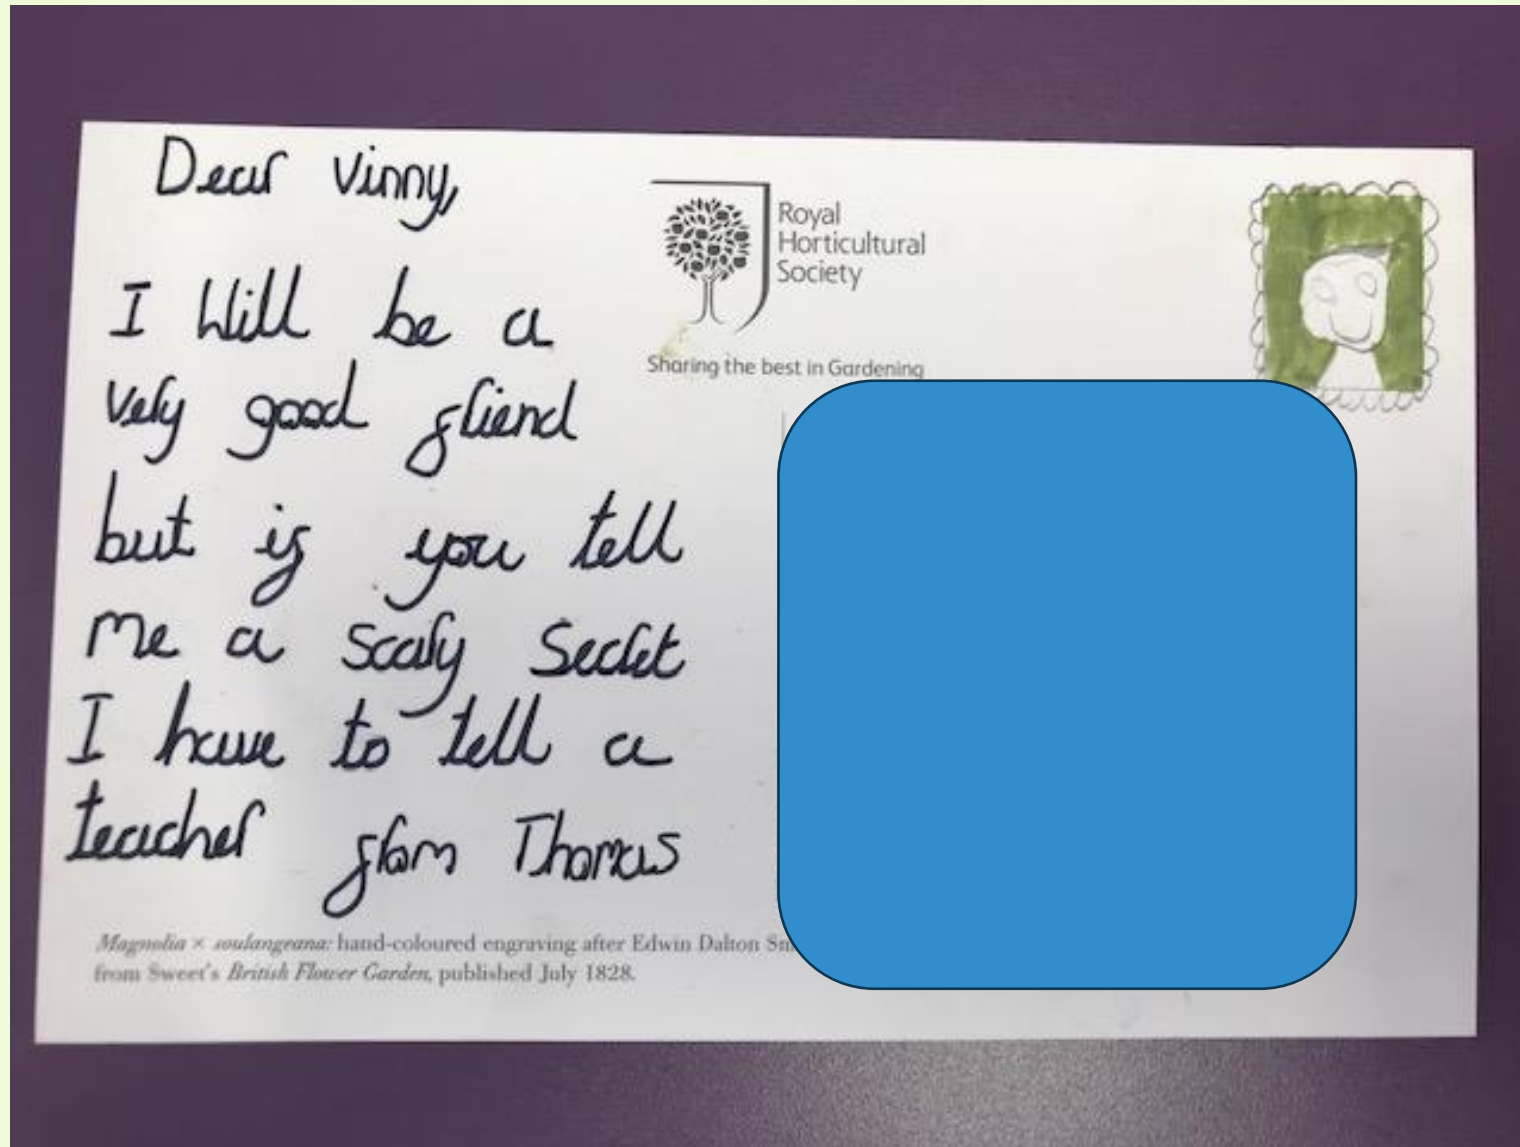 Dear Vinny,
I Will be a
very good friend
but if you tell
me a scary Secret
I have to tell a
teacher from Thomas
Royal
Horticultural
Society
Sharing the best in Gardening
Magnolia × soulangeana: hand-coloured engraving after Edwin Dalton
from Sweet's British Flower Garden, published July 1828.